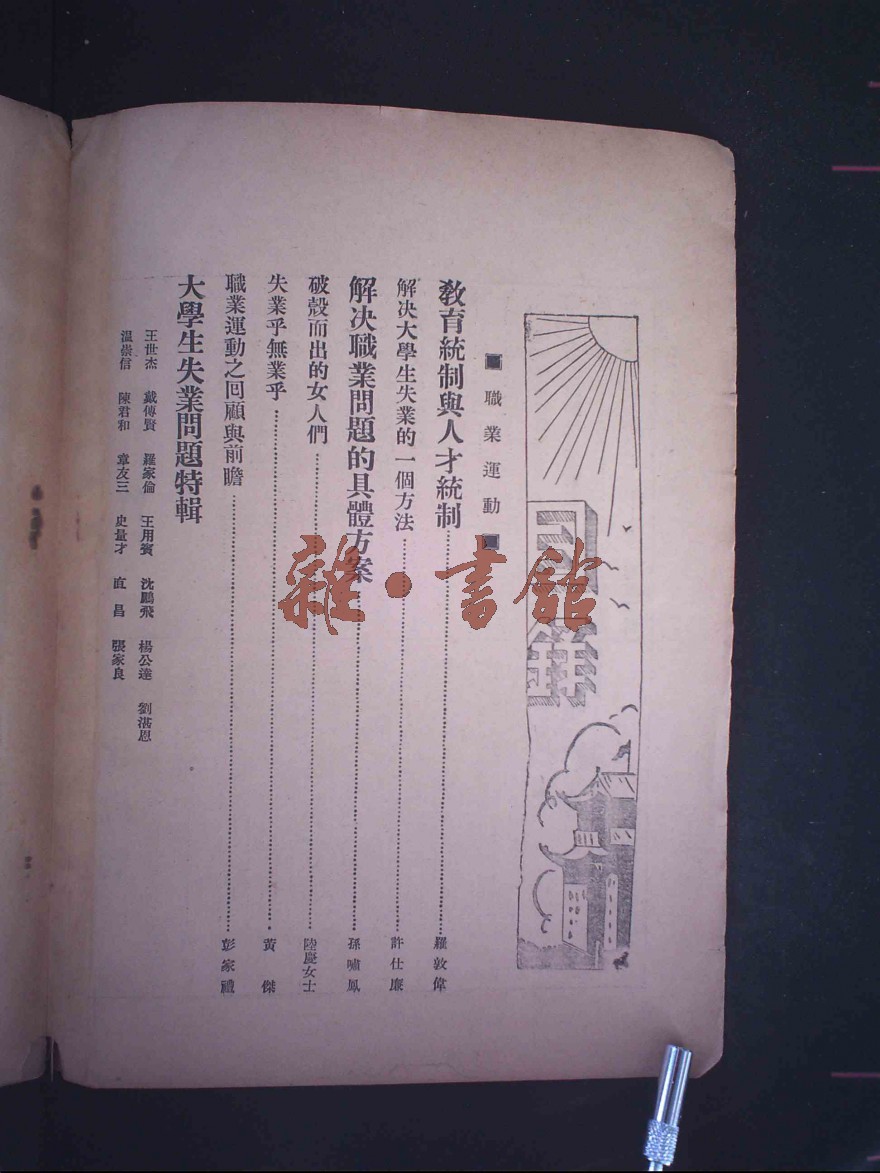 ■職業運動■
教育統制與人才統制……羅敦偉
解决大學生失業的一個方法……許仕廉
解决職業問題的具體方案……孫嘯鳳
破殼而出的女人們……陸慶女士
失業乎無業乎……黃傑
職業運動之囘顧與前瞻……彭家禮
大學生失業問題特輯
王世杰 戴傳賢 羅家倫 王用賓 沈鵬飛 楊公達 劉湛恩
溫崇信 陳君和 章友三 史量才 直昌 張家良
雜·書館